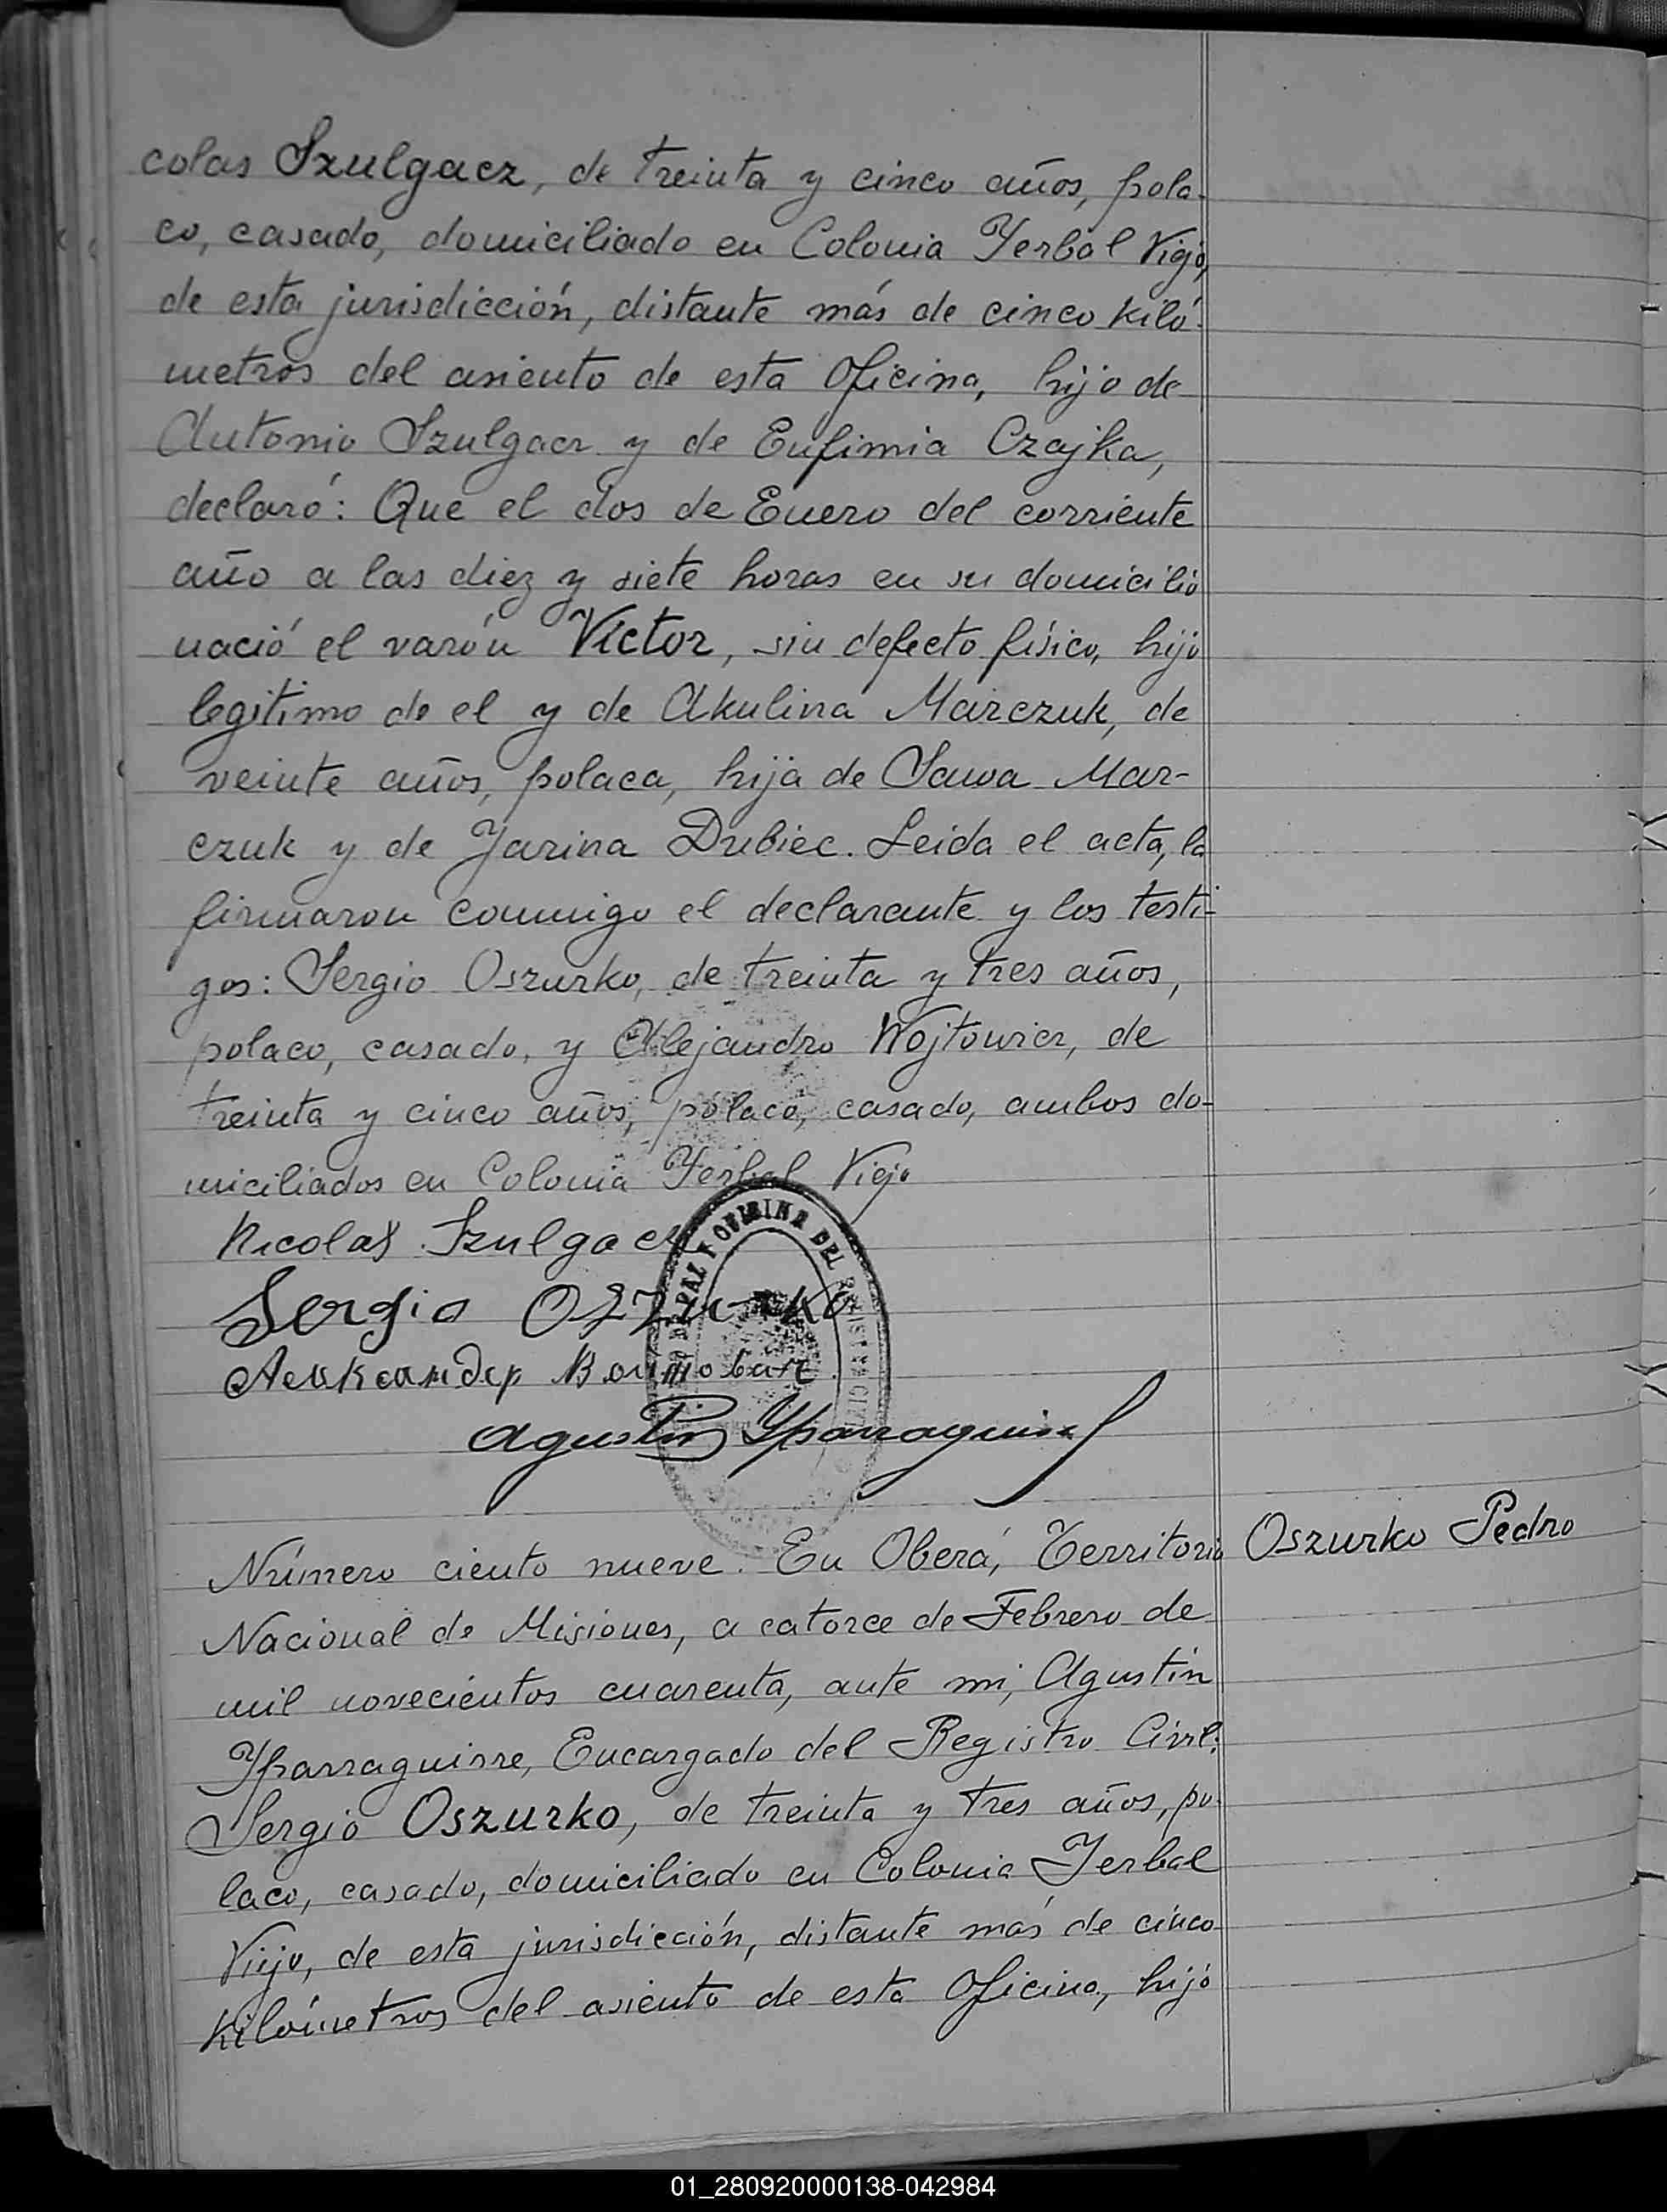 colas Szulgacz, de treinta y cinco años, pola-
co, casado, domiciliado en Colonia Yerbal Viejo,
de esta jurisdicción, distante más de cinco kiló-
metros del asiento de esta Oficina, hijo de
Antonio Szulgacz y de Eufimia Czajka,
declaró: Que el dos de Enero del corriente
año a las diez y siete horas en su domicilio
nació el varón Víctor, sin defecto físico, hijo
legitimo de el y de Akulina Marczuk, de
veinte años, polaca, hija de Sawa Mar-
czuk y de Jarina Dubiec. Leida el acta, la
firmaron conmigo el declarante y los testi-
gos: Sergio Oszurko, de treinta y tres años,
polaco, casado, y Alejandro Wojtowicz, de
treinta y cinco años, polaco, casado, ambos do-
miciliados en Colonia Yerbal Viejo
Nicolas Szulgacz
PAZ Y OFICINA DEL REGISTRO CIVIL
Sergio Oszurko
Александер
Agustin Yparraguirre
Número ciento nueve. En Oberá, Territorio
Oszurko Pedro
Nacional de Misiones, a catorce de Febrero de
mil novecientos cuarenta, ante mi, Agustín
Yparraguirre, Encargado del Registro Civil:
Sergio Oszurko, de treinta y tres años, po-
laco, casado, domiciliado en Colonia Yerbal
Viejo, de esta jurisdicción, distante más de cinco
kilómetros del asiento de esta Oficina, hijo
01_280920000138-042984